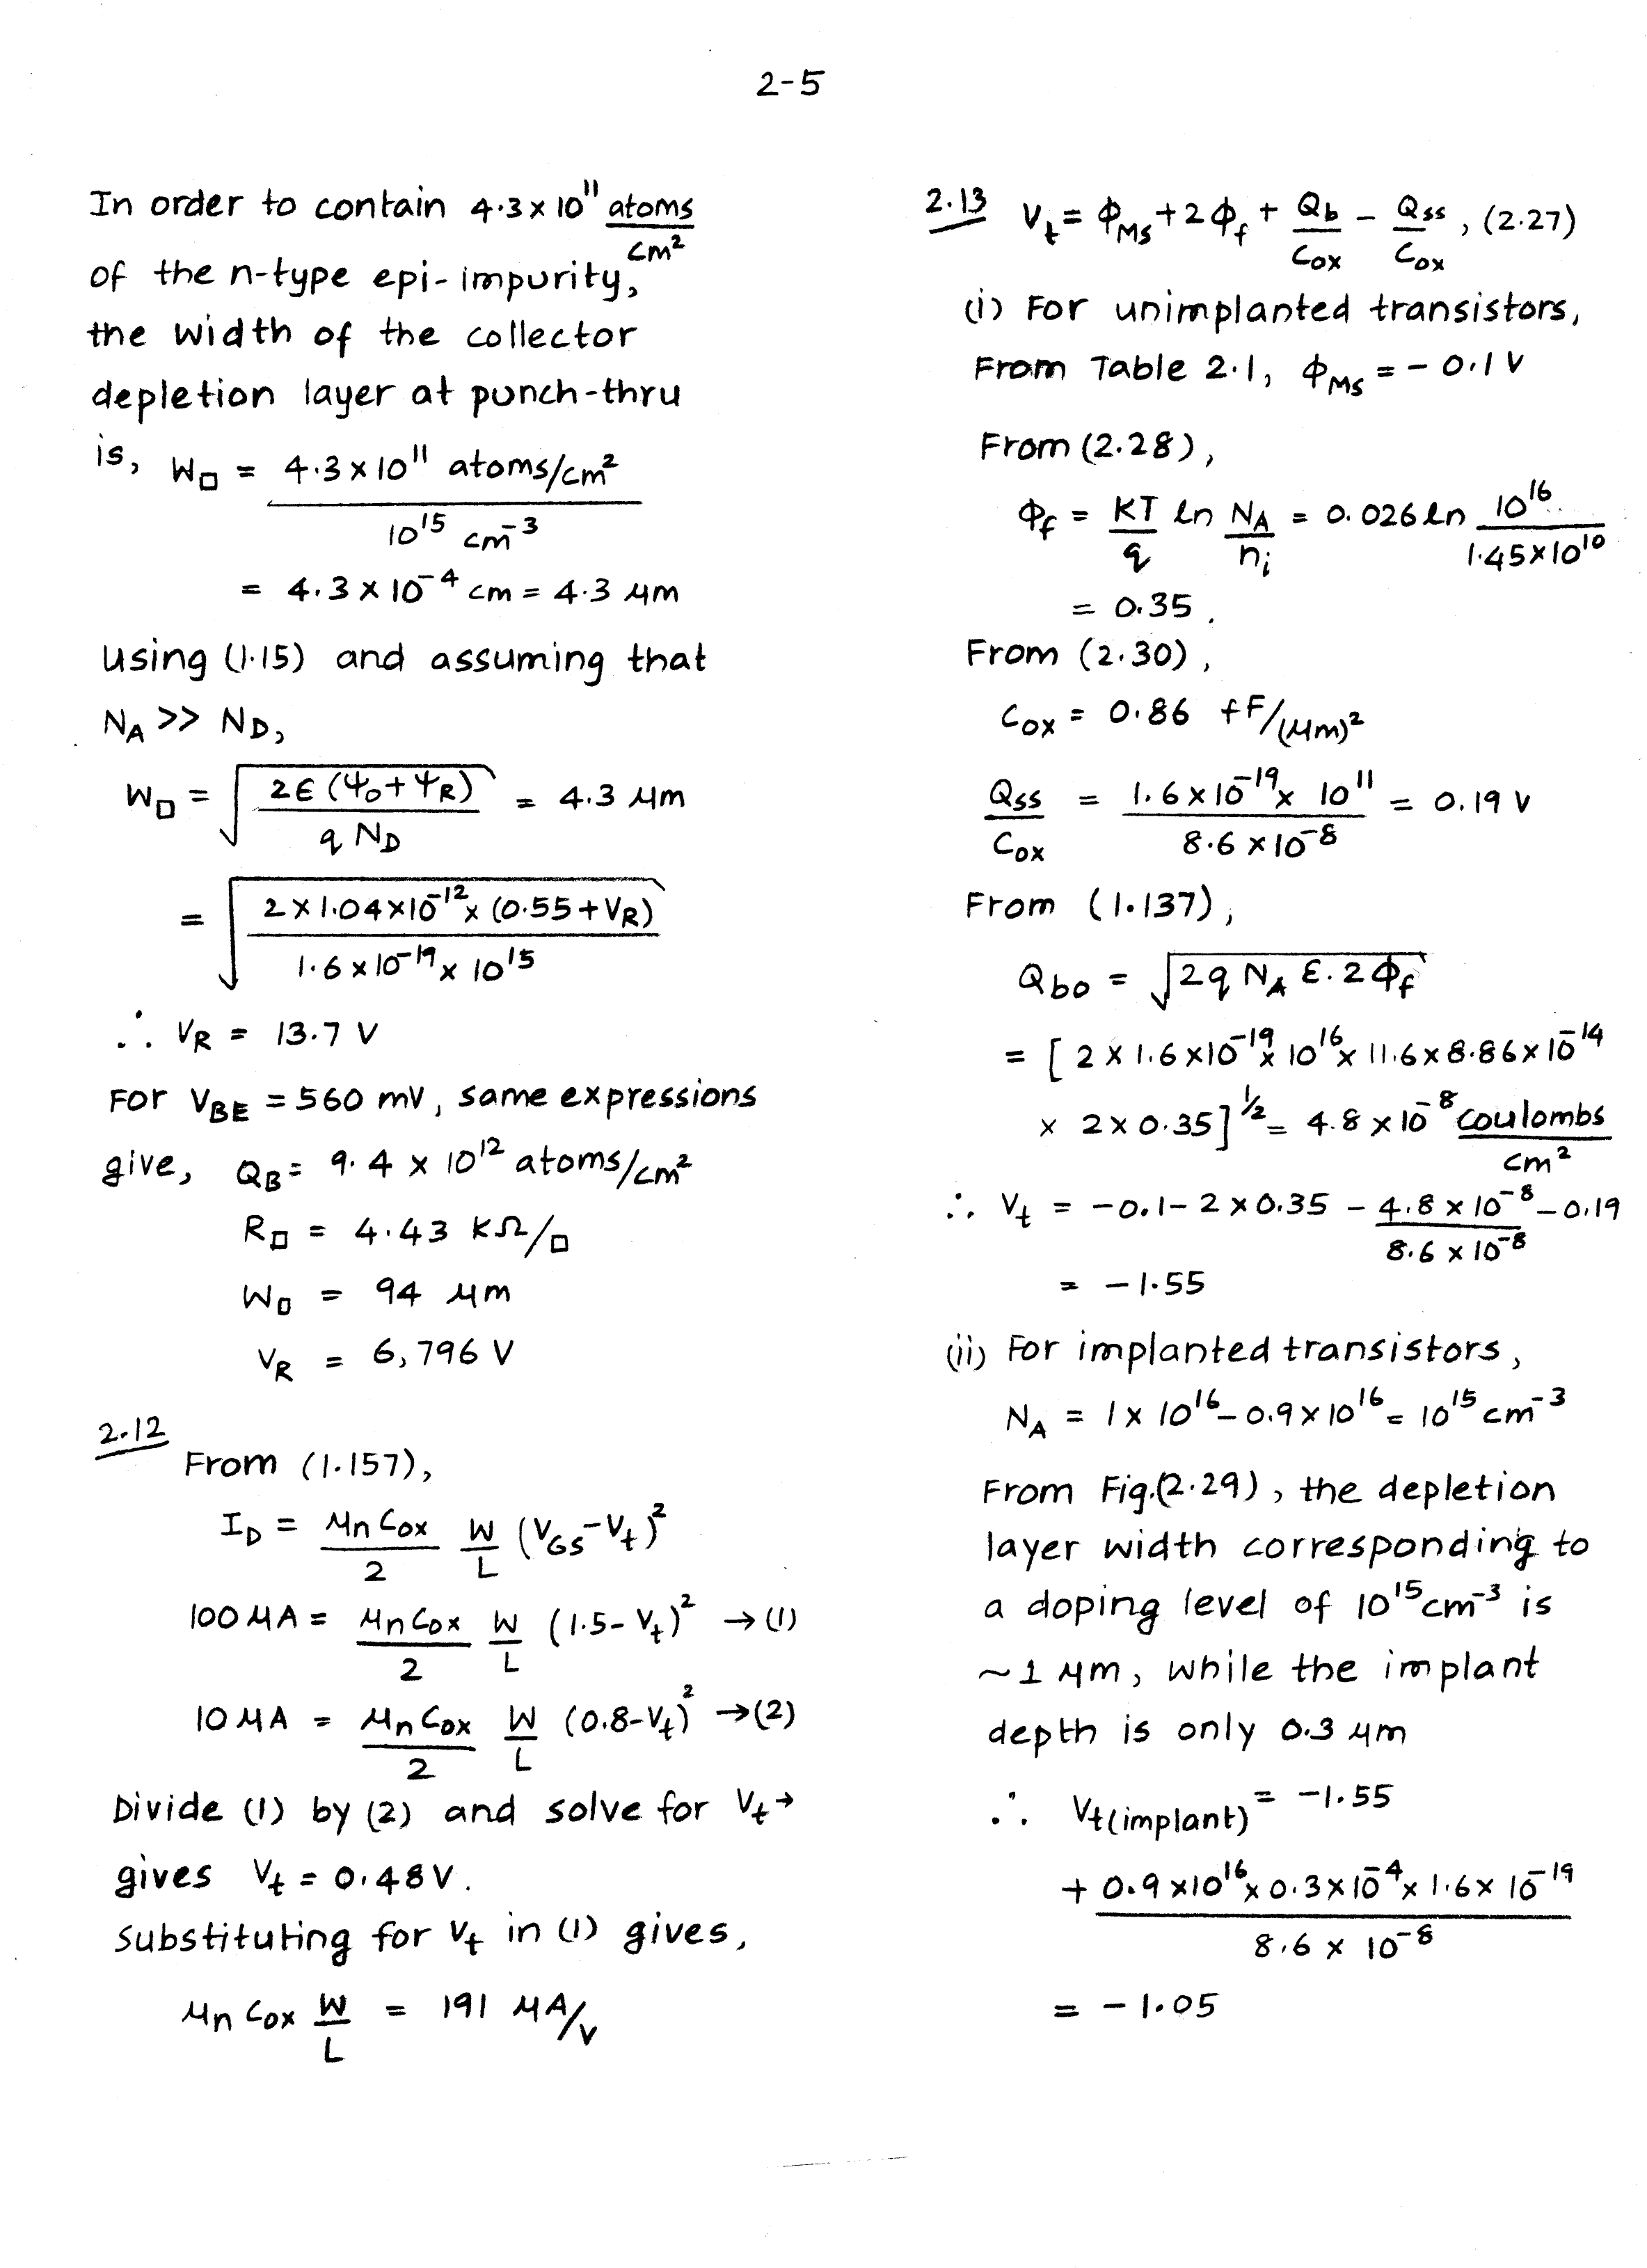 2-5
In order to contain 4.3 x 10^11 atoms/cm^2
of the n-type epi-impurity,
the width of the collector
depletion layer at punch-thru
is, W□ = 4.3 x 10^11 atoms/cm^2 / 10^15 cm^-3
= 4.3 x 10^-4 cm = 4.3 μm
using (1.15) and assuming that
NA >> ND,
W□ = √(2ϵ(ψo+ψR) / q ND) = 4.3 μm
= √(2 x 1.04 x 10^-12 x (0.55+VR) / 1.6 x 10^-19 x 10^15)
∴ VR = 13.7 V
For VBE = 560 mV, same expressions
give, QB = 9.4 x 10^12 atoms/cm^2
R□ = 4.43 KΩ/□
W□ = 94 μm
VR = 6,796 V
2.12
From (1.157),
ID = μn Cox / 2 W/L (VGS-Vt)^2
100 μA = μn Cox / 2 W/L (1.5-Vt)^2 → (1)
10 μA = μn Cox / 2 W/L (0.8-Vt)^2 → (2)
Divide (1) by (2) and solve for Vt →
gives Vt = 0.48V.
Substituting for Vt in (1) gives,
μn Cox W/L = 191 μA/V
2.13 Vt = ΦMS + 2Φf + Qb/Cox - Qss/Cox, (2.27)
(i) For unimplanted transistors,
From Table 2.1, ΦMS = -0.1 V
From (2.28),
Φf = KT/q ln NA/ni = 0.026 ln 10^16 / 1.45x10^10
= 0.35.
From (2.30),
Cox = 0.86 fF/(μm)^2
Qss/Cox = 1.6 x 10^-19 x 10^11 / 8.6 x 10^-8 = 0.19 V
From (1.137),
Qbo = √(2q NA ε.2Φf)
= [2 x 1.6 x 10^-19 x 10^16 x 11.6 x 8.86 x 10^-14
x 2 x 0.35]^1/2 = 4.8 x 10^-8 coulombs/cm^2
∴ Vt = -0.1 - 2 x 0.35 - 4.8 x 10^-8 / 8.6 x 10^-8 - 0.19
= -1.55
(ii) For implanted transistors,
NA = 1 x 10^16 - 0.9 x 10^16 = 10^15 cm^-3
From Fig.(2.29), the depletion
layer width corresponding to
a doping level of 10^15 cm^-3 is
~1 μm, while the implant
depth is only 0.3 μm
∴ Vt(implant) = -1.55
+ 0.9 x 10^16 x 0.3 x 10^-4 x 1.6 x 10^-19 / 8.6 x 10^-8
= -1.05